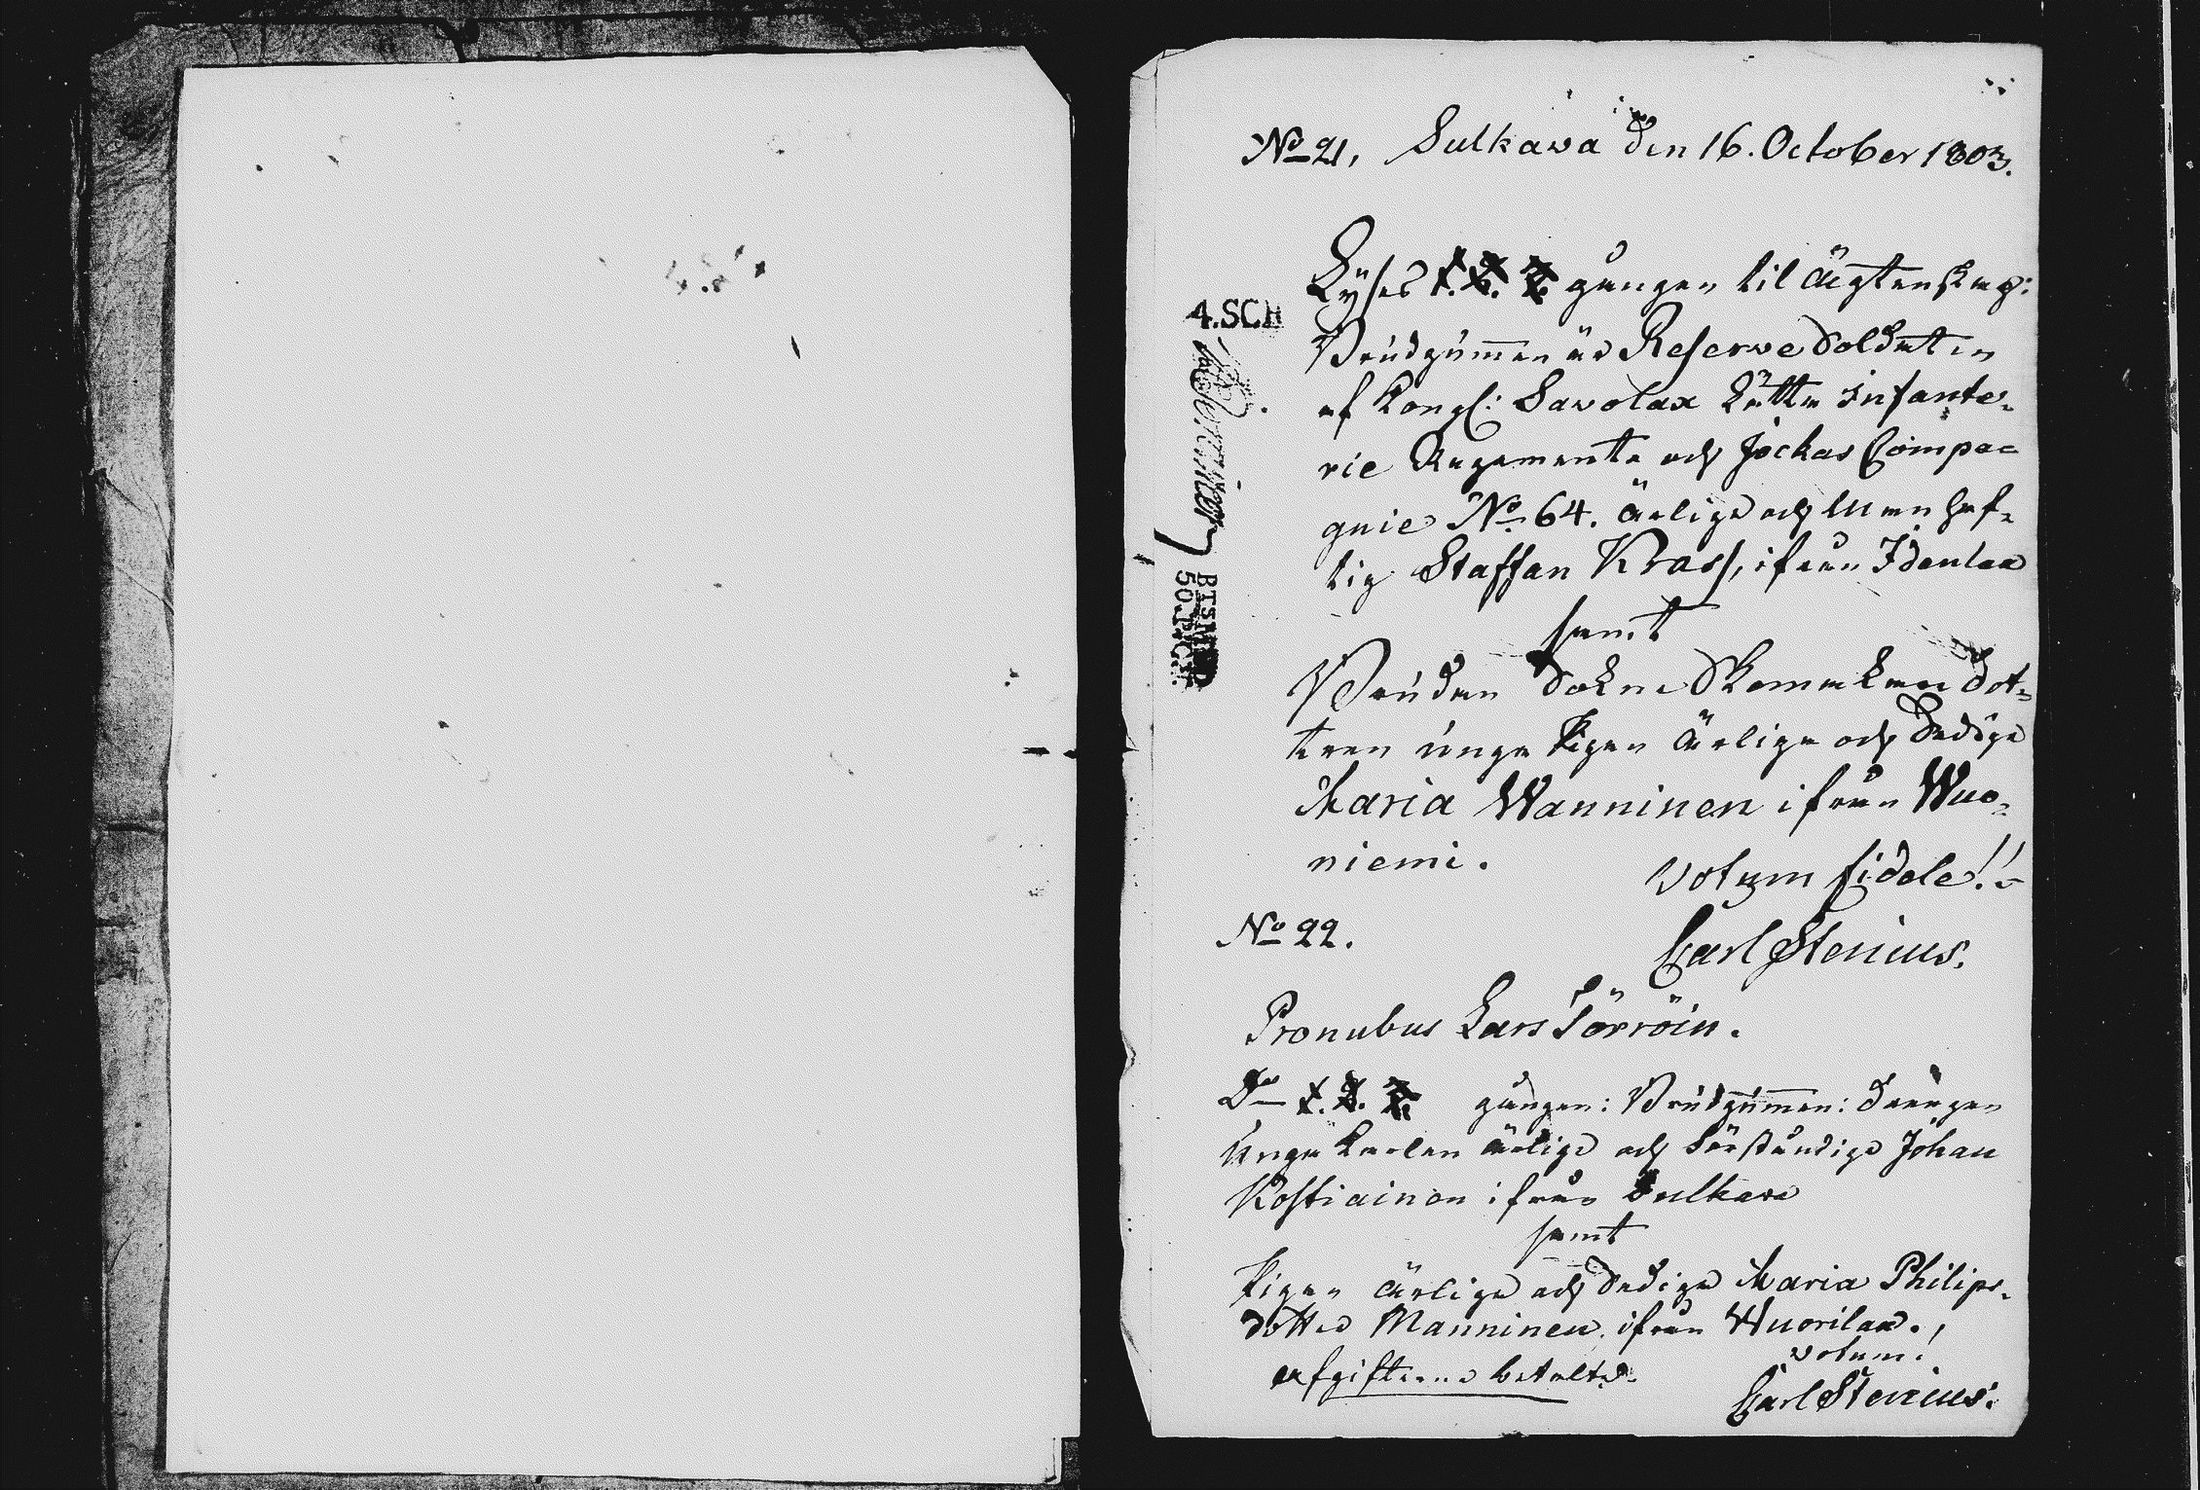 No 21, Sulkava den 16. October 1803.
Lyses 1. 2. 3. gången til ägtenskap:
Brudgummen är Reserve Soldaten
af Kongl: Savolax Lätta Infante-
rie Regemente och Jockas Compa-
gnie No 64. ärlige och Manhaf-
tig Staffan Krass, ifrån Idenlax
samt
4.SCH
BTSM
50.
Bruden Sokne Skomakare Dot-
tren unga Pigan ärliga och Dediga
Maria Wanninen ifrån Wuo-
niemi.
votum fidele!
Carl Stenius.
No 22.
Pronubus Lars Törröin.
Do 1. 2. 3. gången: Brudgummen: Drängen
unga Karlen ärlige och Förståndige Johan
Kostiainen ifrån Sulkava
samt
Pigan ärliga och Dediga Maria Philips-
dotter Manninen ifrån Wuorilax.
votum!
afgifterne betalte.
Carl Stenius.